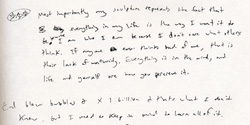 most importantly my sculpture represents the fact that
everything in my life is the way I want it to
be. I am who I am because I don't care what others
think. If anyone ever thinks bad of me, that is
their lack of maturity. Everything is in the mind, and
life and yourself are how you perceive it.
And blow bubbles x 1 billion that's what I don't
know, but I need to keep in mind to learn all of it.